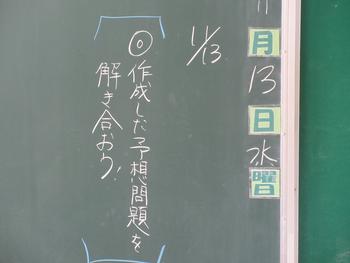 11月13日水曜日
11/13
◎作成した予想問題を
解き合おう!